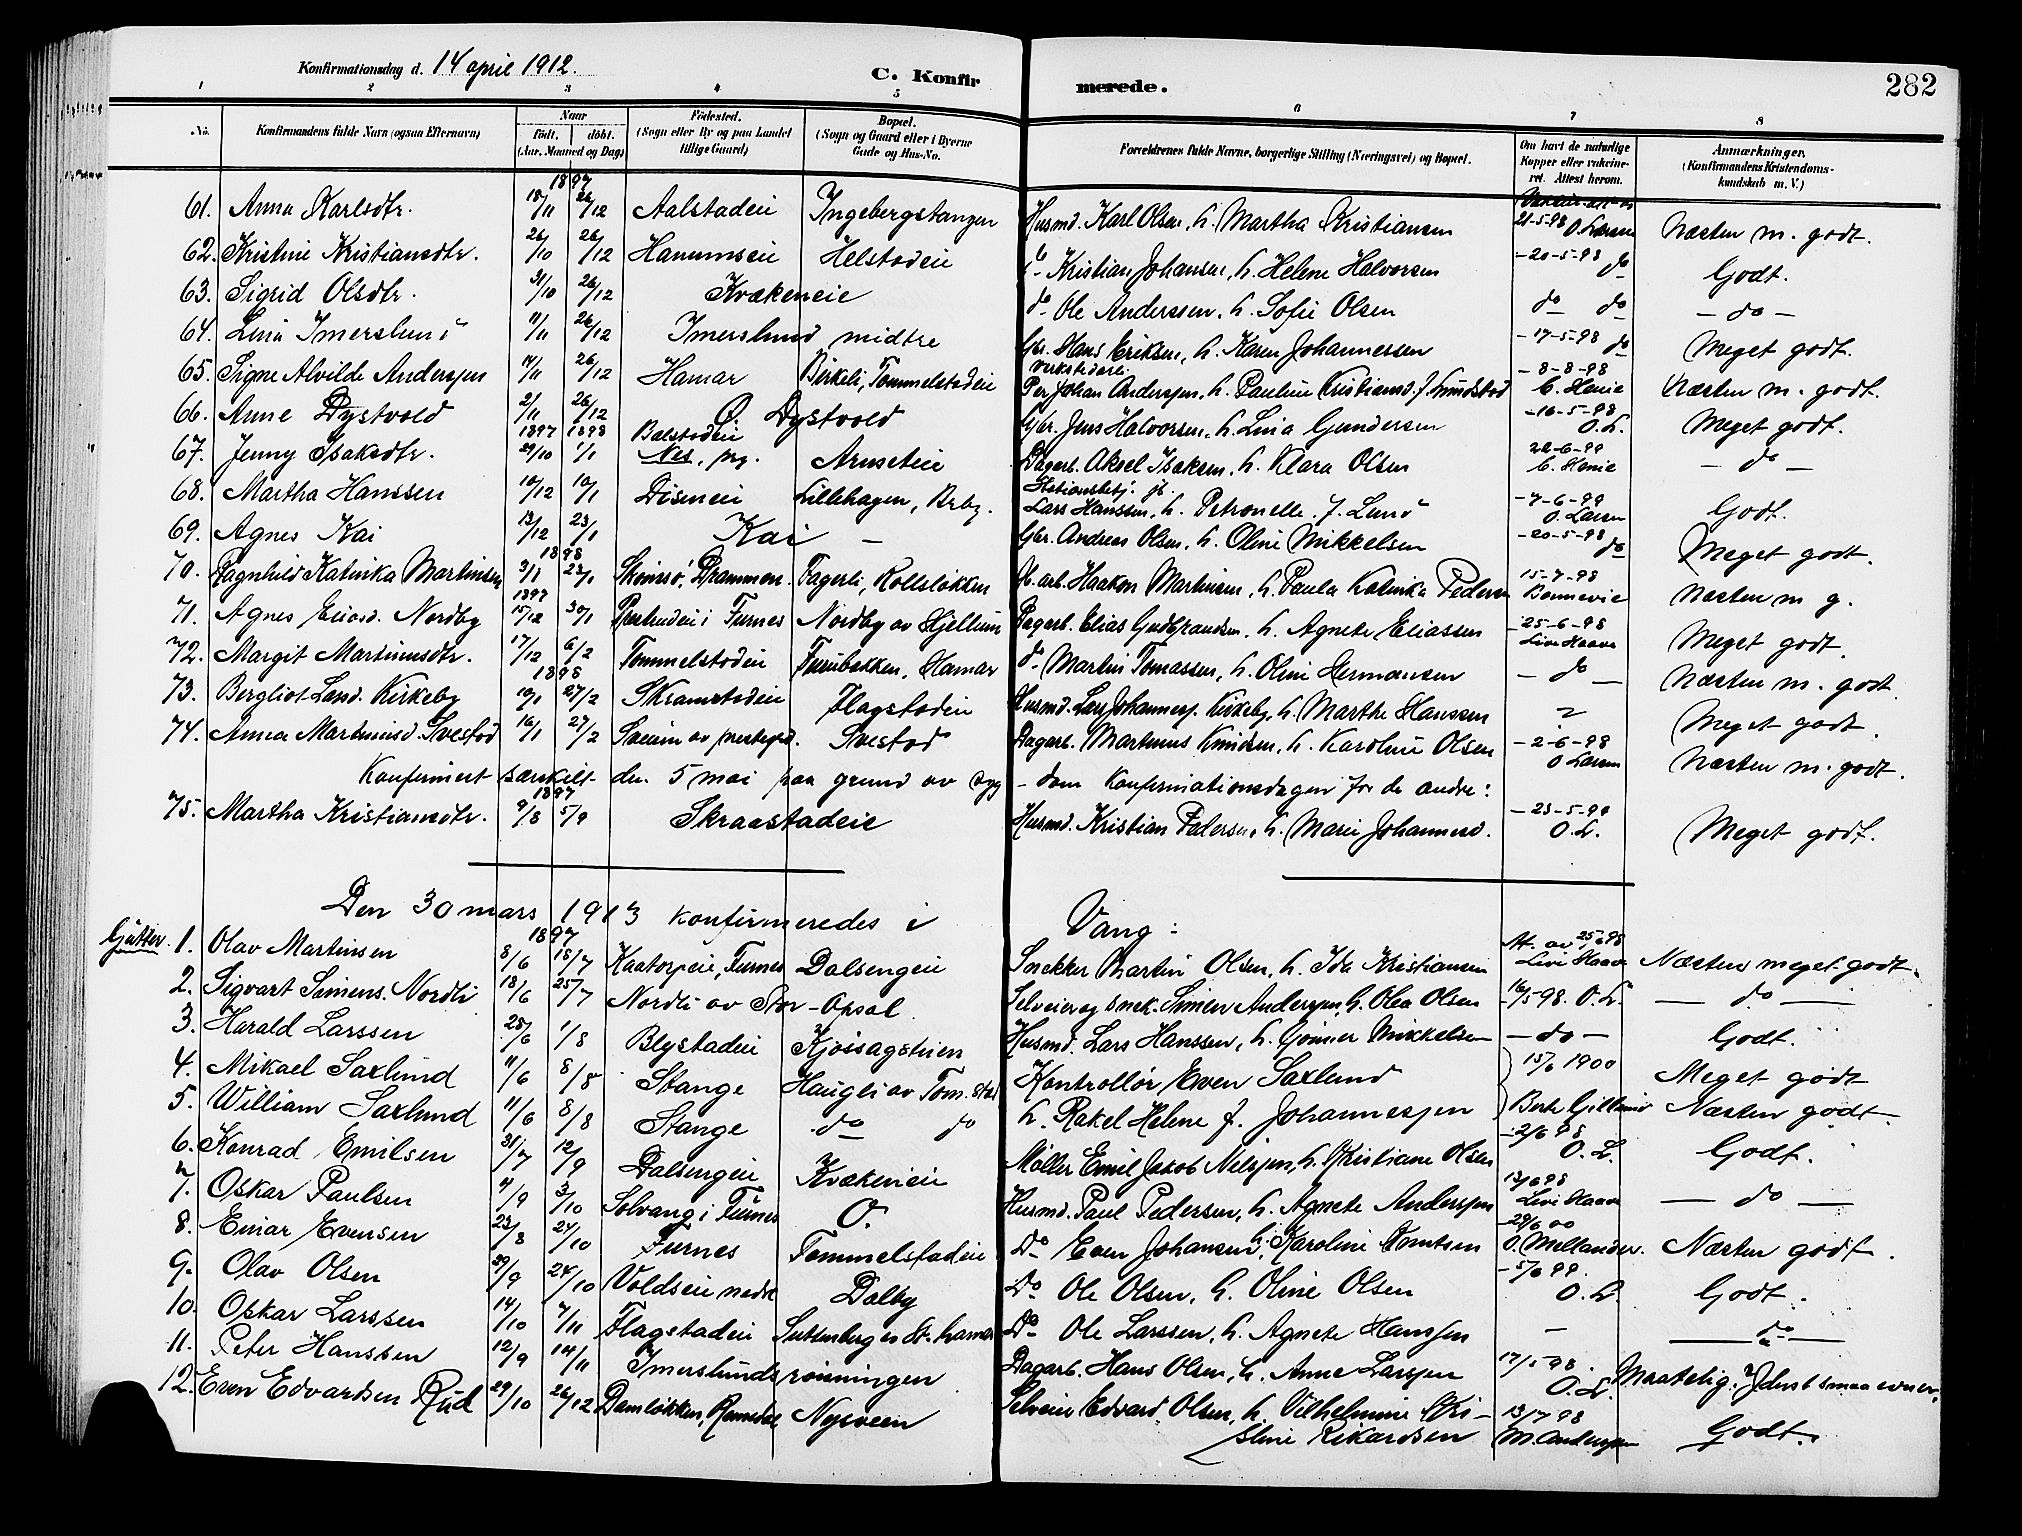 Konfirmationsdag d. 14 april 1912. C. Konfirmerede. 282
1 2 3 4 5 6 7 8
No. Konfirmandens fulde Navn (ogsaa Efternavn) Naar født. døbt. (Aar, Maaned og Dag) Fødested. (Sogn eller By og paa Landet tillige Gaard) Bopæl. (Sogn og Gaard eller i Byerne Gade og Hus-No. Forældrenes fulde Navne, borgerlige Stilling (Næringsvei) og Bopæl. Om havt de naturlige Kopper eller vakcineret. Attest herom. Anmærkninger. (Konfirmandens Kristendomskundskab m. V.)
1897
61. Anna Karlsdtr. 18/11 26/12 Aalstadeie Ingebergstangen Husmd. Karl Olsen, h. Martha Kristiansen 21-5-98 O. Larsen Næsten m. godt.
62. Kristine Kristiansdtr. 26/10 26/12 Hanumseie Helstadeie do Kristian Johansen, h. Helene Halvorsen -20-5-98 do Godt.
63. Sigrid Olsdtr. 31/10 26/12 Kvækeneie do Ole Anderssen, h. Sofie Olsen do do - do -
64. Lina Imerslund 11/11 26/12 Imerslund midtre Gbr. Hans Eriksen, h. Karen Johannessen -17-5-98 do Meget godt.
65. Signe Alvilde Anderssen 14/11 26/12 Hamar Birkeli, Tommelstadeie Verkstedarb. Per Johan Anderssen, h. Pauline Kristiansd. f. Smedstad -8-8-98 C. Henie Næsten m. godt.
66. Anne Dystvold 2/11 26/12 Ø Dystvold Gbr. Jens Halvorsen, h. Lina Gundersen -16-5-98 O. L. Meget godt.
1897 1898
67. Jenny Isaksdtr. 29/10 1/1 Balstadeie Nes, prg. Arnseteie Dagarb. Aksel Isaksen, h. Klara Olsen 22-6-99 C. Henie - do -
68. Martha Hanssen 10/12 10/1 Diseneie Lillehagen, Brbg. Stationsbetj. jb. Lars Hanssen, h. Petronelle f. Lund -7-6-99 O. Larsen Godt.
69. Agnes Kai 13/12 23/1 Kai - Gbr. Andreas Olsen, h. Oline Mikkelsen -20-5-98 do Meget godt.
1898
70. Ragnhild Katinka Martinsen 3/1 23/1 Drammen. Fagerli, Kollsløkken arb. Haakon Martinsen, h. Paula Katinka Pedersen 15-7-98 Bonnevie Næsten m g.
1897
71. Agnes Eliasd. Nordby 15/12 30/1 i Furnes Nordby av Hjellum Dagarb. Elias Gudbrandsen, h. Agnete Eliassen -25-6-98 Livi Haave Meget godt.
72. Margit Martinsdtr. 17/12 6/2 Tommelstadeie Furubakken, Hamar do Martin Tomassen, h. Oline Hermansen - do - Næsten m. godt
1898
73. Bergliot Larsd. Kirkeby 10/1 27/2 Skramstadeie Flagstadeie Husmd. Lars Johanness. Kirkeby, h. Marthe Hanssen ? Meget godt.
74. Anna Martinusd. Svestad 16/1 27/2 av prestegrd. Svestad Dagarb. Martinus Knudsen, h. Karoline Olsen -2-6-98 O Larsen Næsten m. godt.
Konfirmert særskilt den 5 mai paa grund av syg-dom konfirmationsdagen for de andre:
1897
75. Martha Kristiansdtr. 9/8 5/9 Skraastadeie Husmd. Kristian Pedersen, h. Marie Johannesd. -23-5-99 O. L. Meget godt.
Den 30 mars 1913 konfirmeredes i Vang:
1897
Gutter. 1. Olav Martinsen 8/6 18/7 Kaatorpeie, Furnes Dalsengeie Snekker Martin Olsen, h. Ida Kristiansen At. av 25/6 98 Livi Haave Næsten meget godt.
2. Sigvart Simens. Nordli 18/6 25/7 Nordli av Stor-Opsal. Selveier og snek. Simen Anderssen, h. Olea Olsen 16/5 98. O. L. - do -
3. Harald Larssen 28/6 1/8 Blystadeie Kjossagstuen Husmd. Lars Hanssen, h. Gunner Mikkelsen - do - Godt.
4. Mikael Saxlund 11/6 8/8 Stange Haugli av Tom.stad Kontrollør Even Saxlund 15/6 1900 Meget godt
5. William Saxlund 11/6 8/8 Stange do do h. Rakel Helene f. Johannessen Næsten godt.
6. Konrad Emilsen 31/7 12/9 Dalsengeie Kvækeneie Møller Emil Jakob Nilssen, h. Kristiane Olsen -2/6 98 O. L. Godt.
7. Oskar Paulsen 4/9 3/10 Solvang i Furnes O. Husmd. Paul Pedersen, h. Agnete Anderssen 13/6 98 Livi Haave - do -
8. Einar Evensen 23/8 24/10 Furnes Tommelstadeie Do Even Johansen, h. Karoline Knutsen 29/6 00 O. Mellander. Næsten godt.
9. Olav Olsen 29/9 24/10 Voldseie nedre Dalby Do Ole Olsen, h. Oline Olsen -5/6 99. O. L. Godt.
10. Oskar Larssen 14/10 7/11 Flagstadeie Do Ole Larssen, h. Agnete Hanssen - - do -
11. Peter Hanssen 12/9 14/11 Imerslundsrønningen Dagarb. Hans Olsen, h. Anne Larssen 17/5 98. O. L. Maatelig. Ydmst smaa evner.
12. Even Edvardsen Rud 29/10 26/12 Damløkken, Romedal Nysveen Selveier Edvard Olsen, h. Vilhelmine Kri-
stine Rikardsen 13/7 98 M. Anderssen Godt.